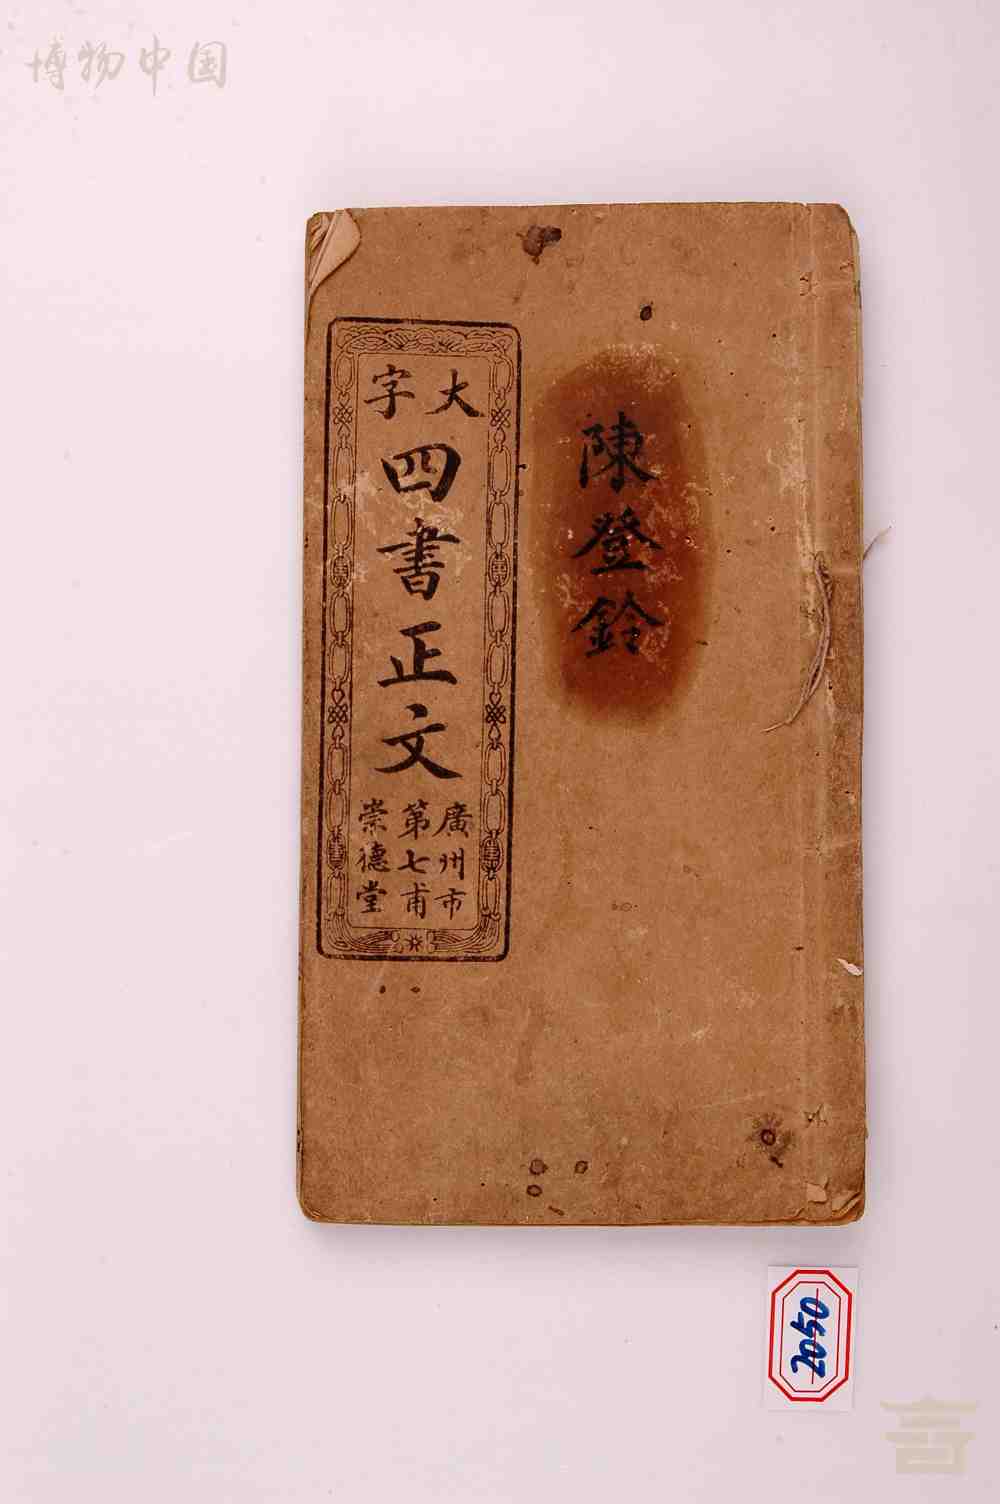 博物中国
陳登鈴
大字
四書正文
廣州市
第七甫
崇德堂
2050